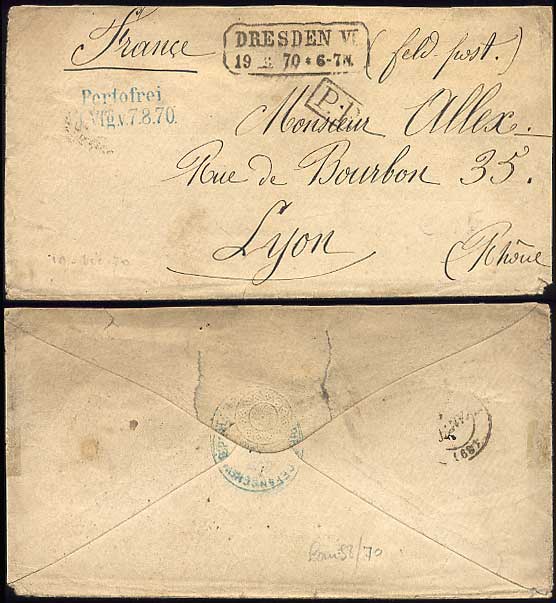 France
DRESDEN
19 70 * 6-7N.
(feld-post.)
Portofrei
Vfg. v. 7.8.70.
Monsieur Allex.
Rue de Bourbon 35.
Lyon
(Rhône
(68)
/70